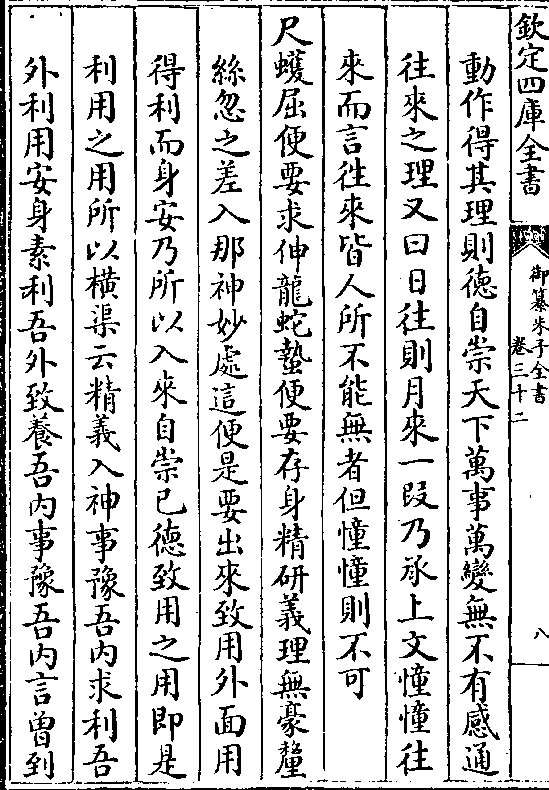 欽定四庫全書
御纂朱子全書
卷三十二
八
動作得其理則德自崇天下萬事萬變無不有感通
往來之理又曰日往則月來一段乃承上文憧憧往
來而言往來皆人所不能無者但憧憧則不可
尺蠖屈便要求伸龍蛇蟄便要存身精研義理無豪釐
絲忽之差入那神妙處這便是要出來致用外面用
得利而身安乃所以入來自崇已德致用之用即是
利用之用所以橫渠云精義入神事豫吾内求利吾
外利用安身素利吾外致養吾内事豫吾内言曽到